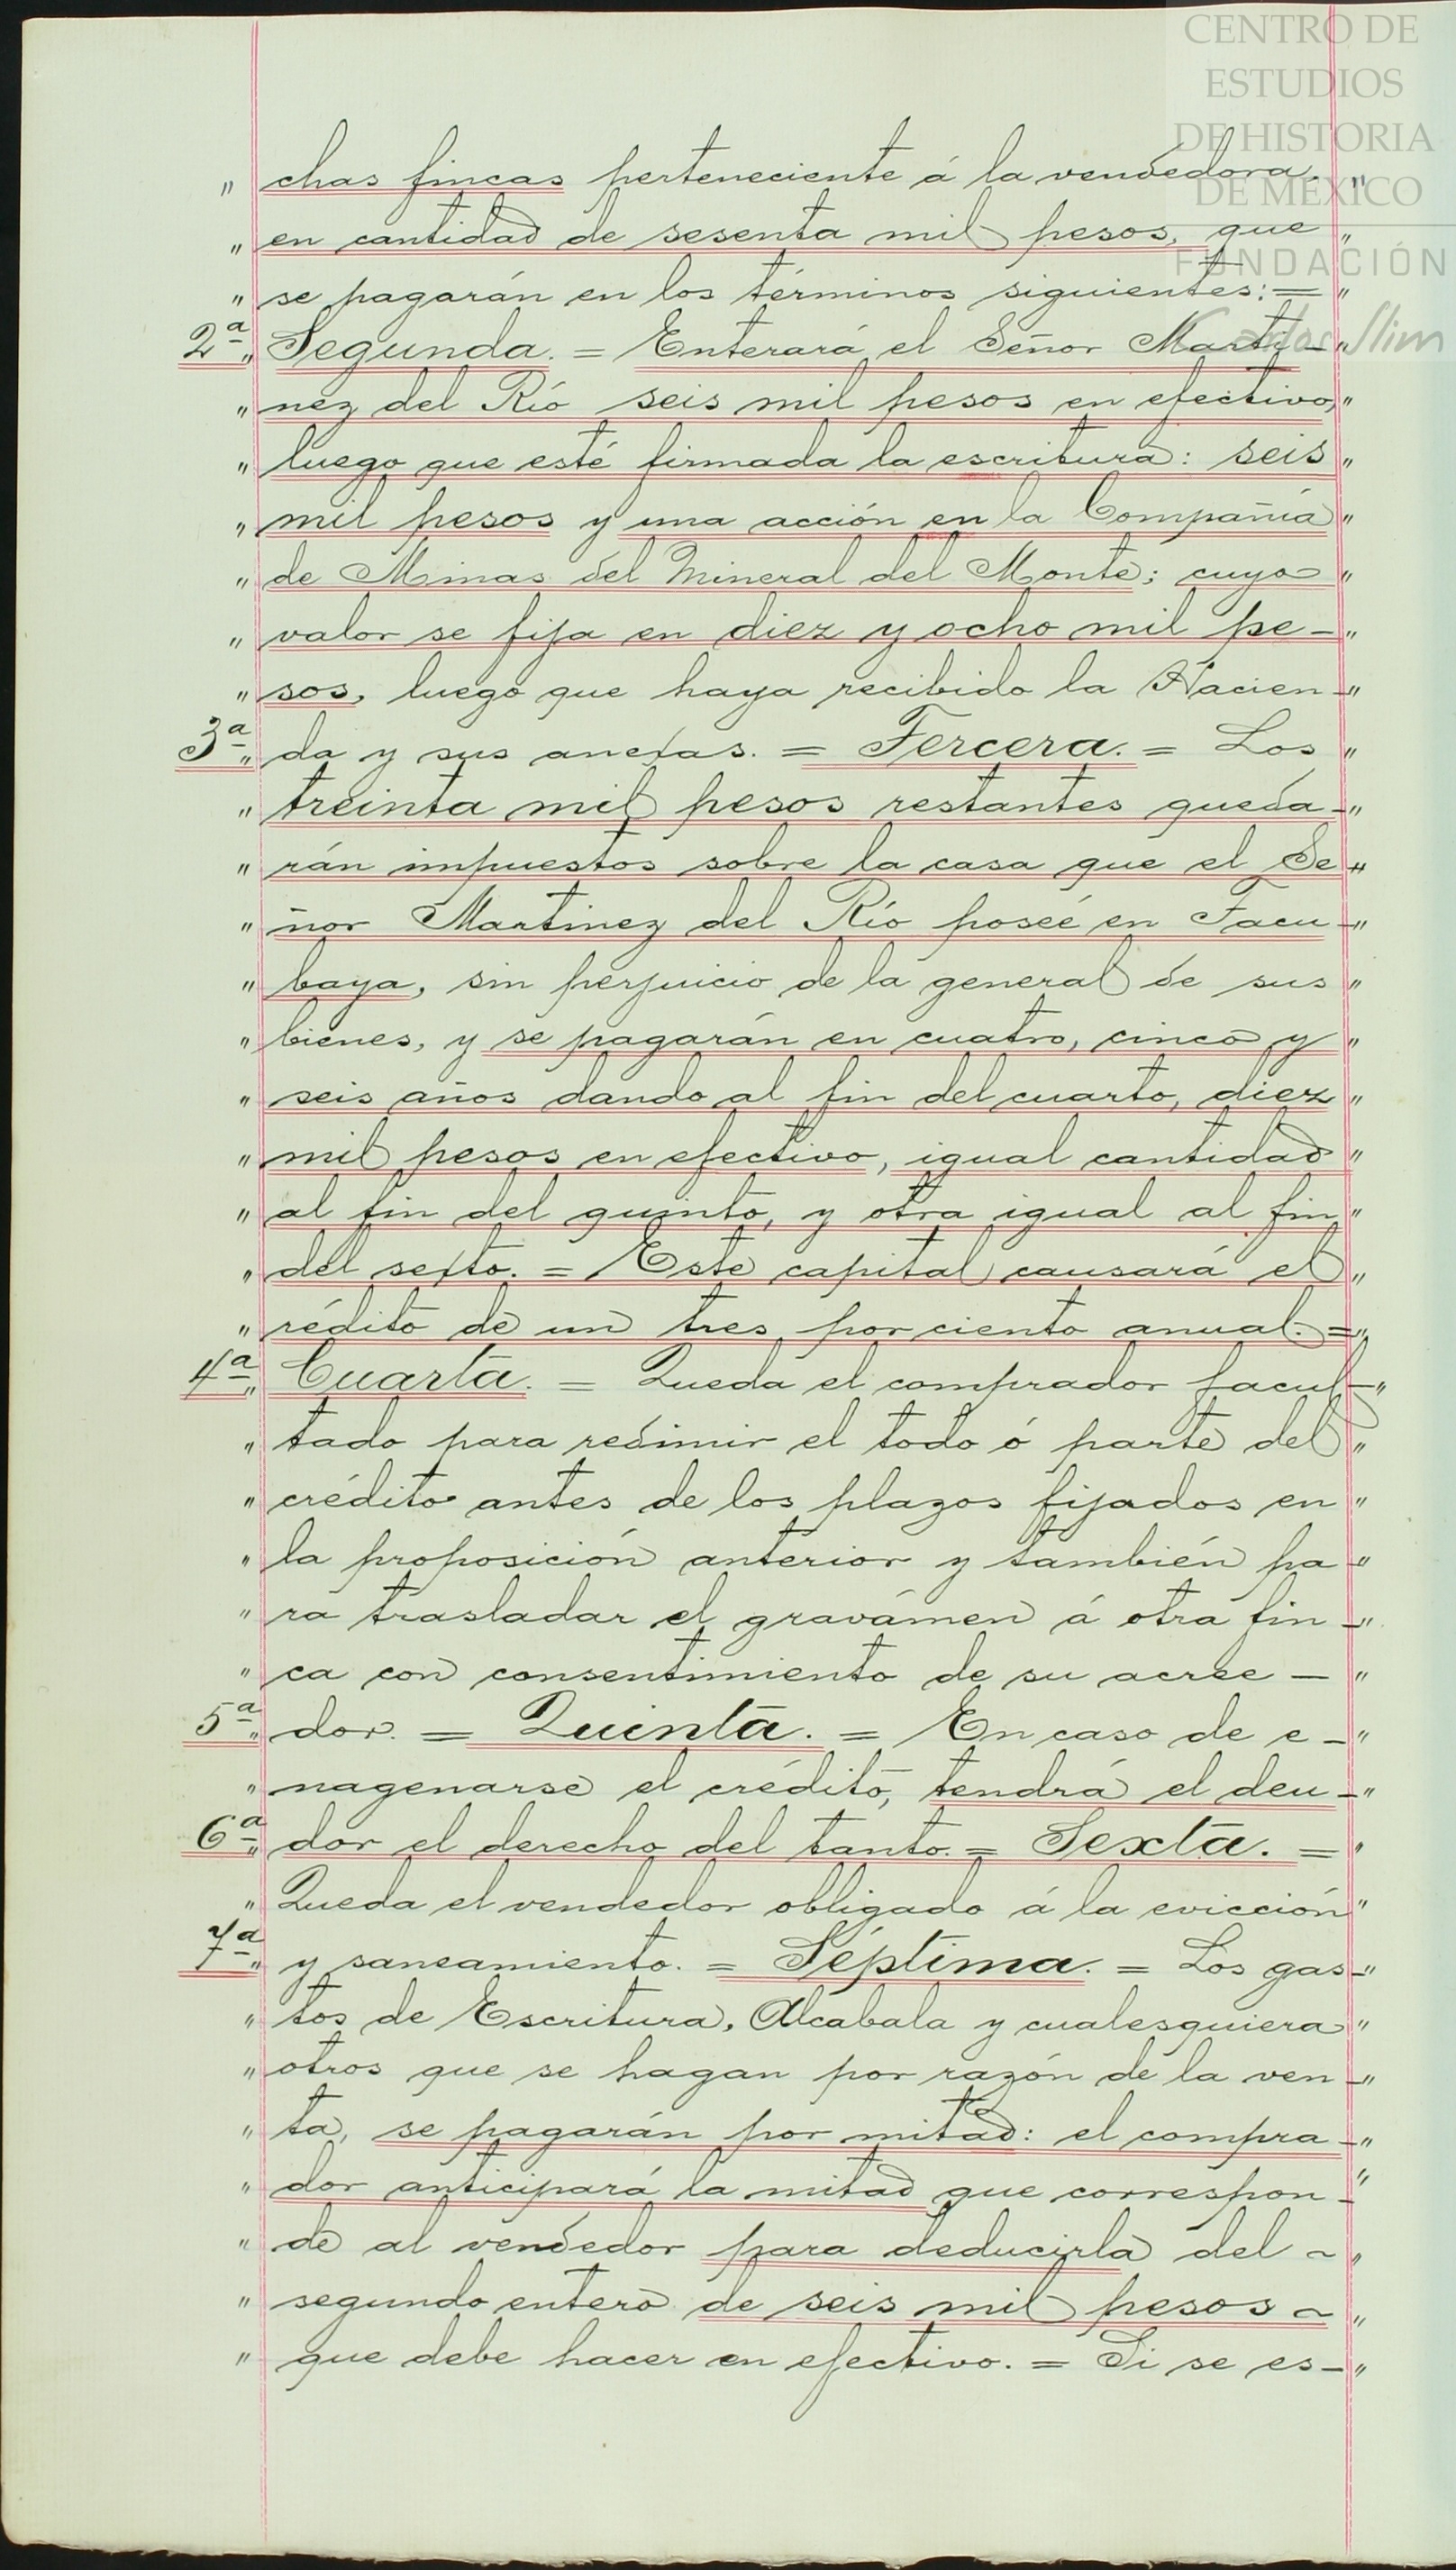 CENTRO DE
ESTUDIOS
DE HISTORIA
DE MÉXICO
FUNDACIÓN
Carlos Slim
" chas fincas perteneciente á la vendedora. "
" en cantidad de sesenta mil pesos, que "
" se pagarán en los términos siguientes: = "
2ª " Segunda. = Enterará el Señor Marti- "
" nez del Río seis mil pesos en efectivo, "
" luego que esté firmada la escritura: seis "
" mil pesos y una acción en la Compañía "
" de Minas del Mineral del Monte; cuyo "
" valor se fija en diez y ocho mil pe- "
" sos, luego que haya recibido la Hacien- "
3ª " da y sus anexas. = Tercera. = Los "
" treinta mil pesos restantes queda- "
" rán impuestos sobre la casa que el Se- "
" ñor Martinez del Río poseé en Tacu- "
" baya, sin perjuicio de la general de sus "
" bienes, y se pagarán en cuatro, cinco y "
" seis años dando al fin del cuarto, diez "
" mil pesos en efectivo, igual cantidad "
" al fin del quinto, y otra igual al fin "
" del sexto. = Este capital causará el "
" rédito de un tres por ciento anual. = "
4ª " Cuarta. = Queda el comprador facul- "
" tado para redimir el todo ó parte del "
" crédito antes de los plazos fijados en "
" la proposición anterior y también pa- "
" ra trasladar el gravámen á otra fin- "
" ca con consentimiento de su acree- "
5ª " dor. = Quinta. = En caso de e- "
" nagenarse el crédito, tendrá el deu- "
6ª " dor el derecho del tanto. = Sexta. = "
" Queda el vendedor obligado á la evicción "
7ª " y saneamiento. = Séptima. = Los gas- "
" tos de Escritura, Alcabala y cualesquiera "
" otros que se hagan por razón de la ven- "
" ta, se pagarán por mitad: el compra- "
" dor anticipará la mitad que correspon- "
" de al vendedor para deducirla del ~ "
" segundo entero de seis mil pesos ~ "
" que debe hacer en efectivo. = Si se es- "